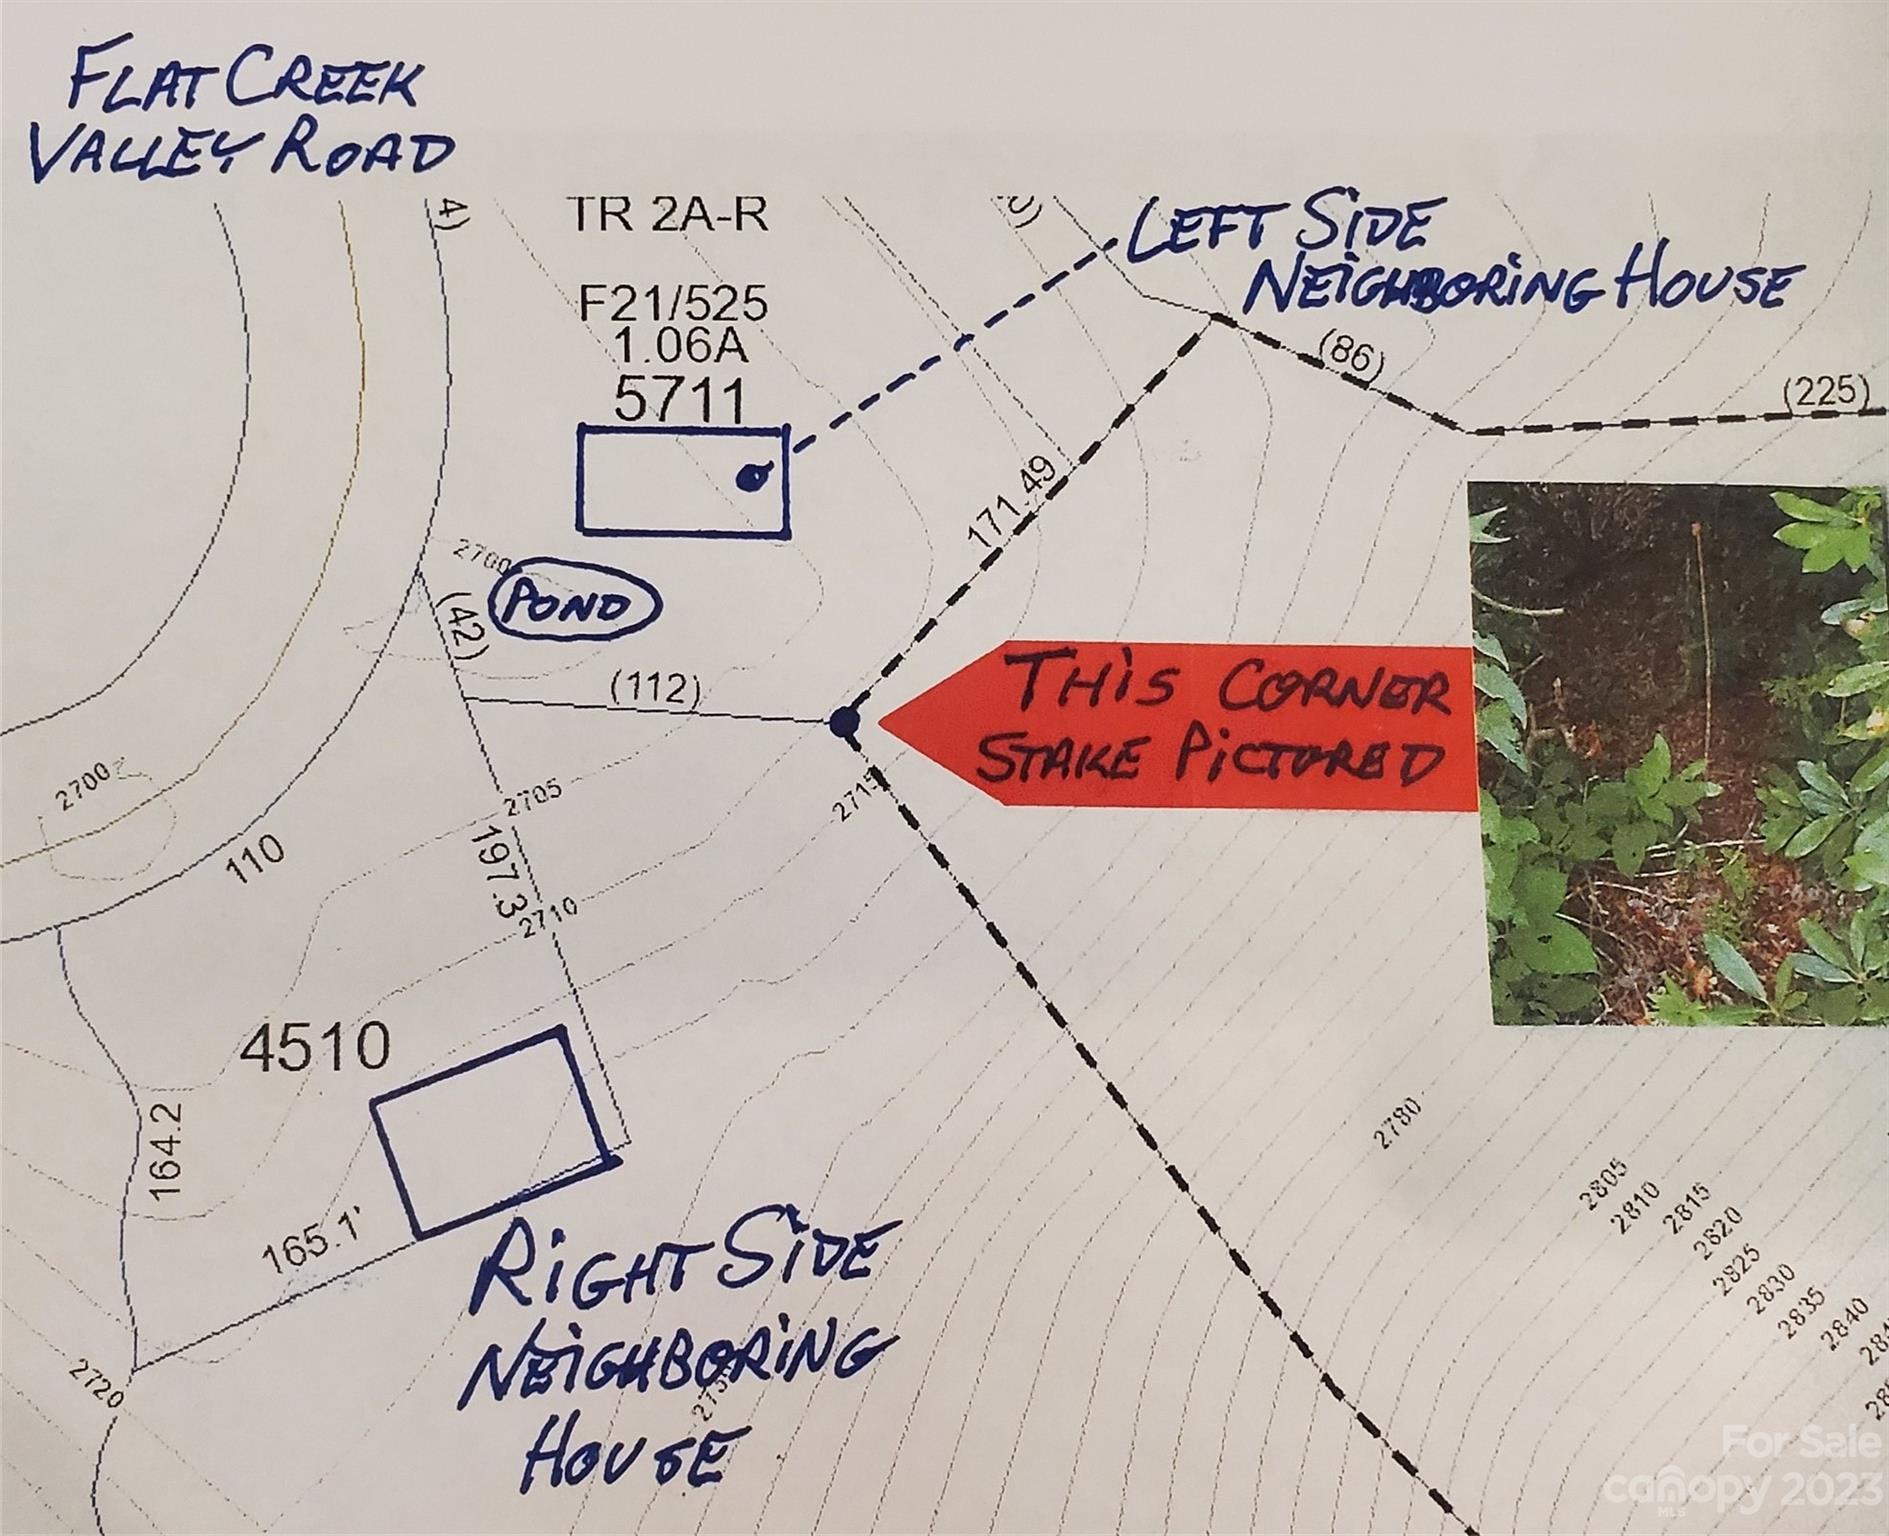 FLAT CREEK
VALLEY ROAD
4)
TR 2A-R
LEFT SIDE
NEIGHBORING HOUSE
F21/525
1.06A
5711
(86)
(225)
171.49
2700
POND
(42)
(112)
THIS CORNER
STAKE PICTURED
2700
2705
2715
110
197.3
2710
4510
164.2
165.1'
2780
2805
2810
2815
2820
2825
2830
2835
2840
RIGHT SIDE
NEIGHBORING
HOUSE
2720
For Sale
canopy 2023
MLS